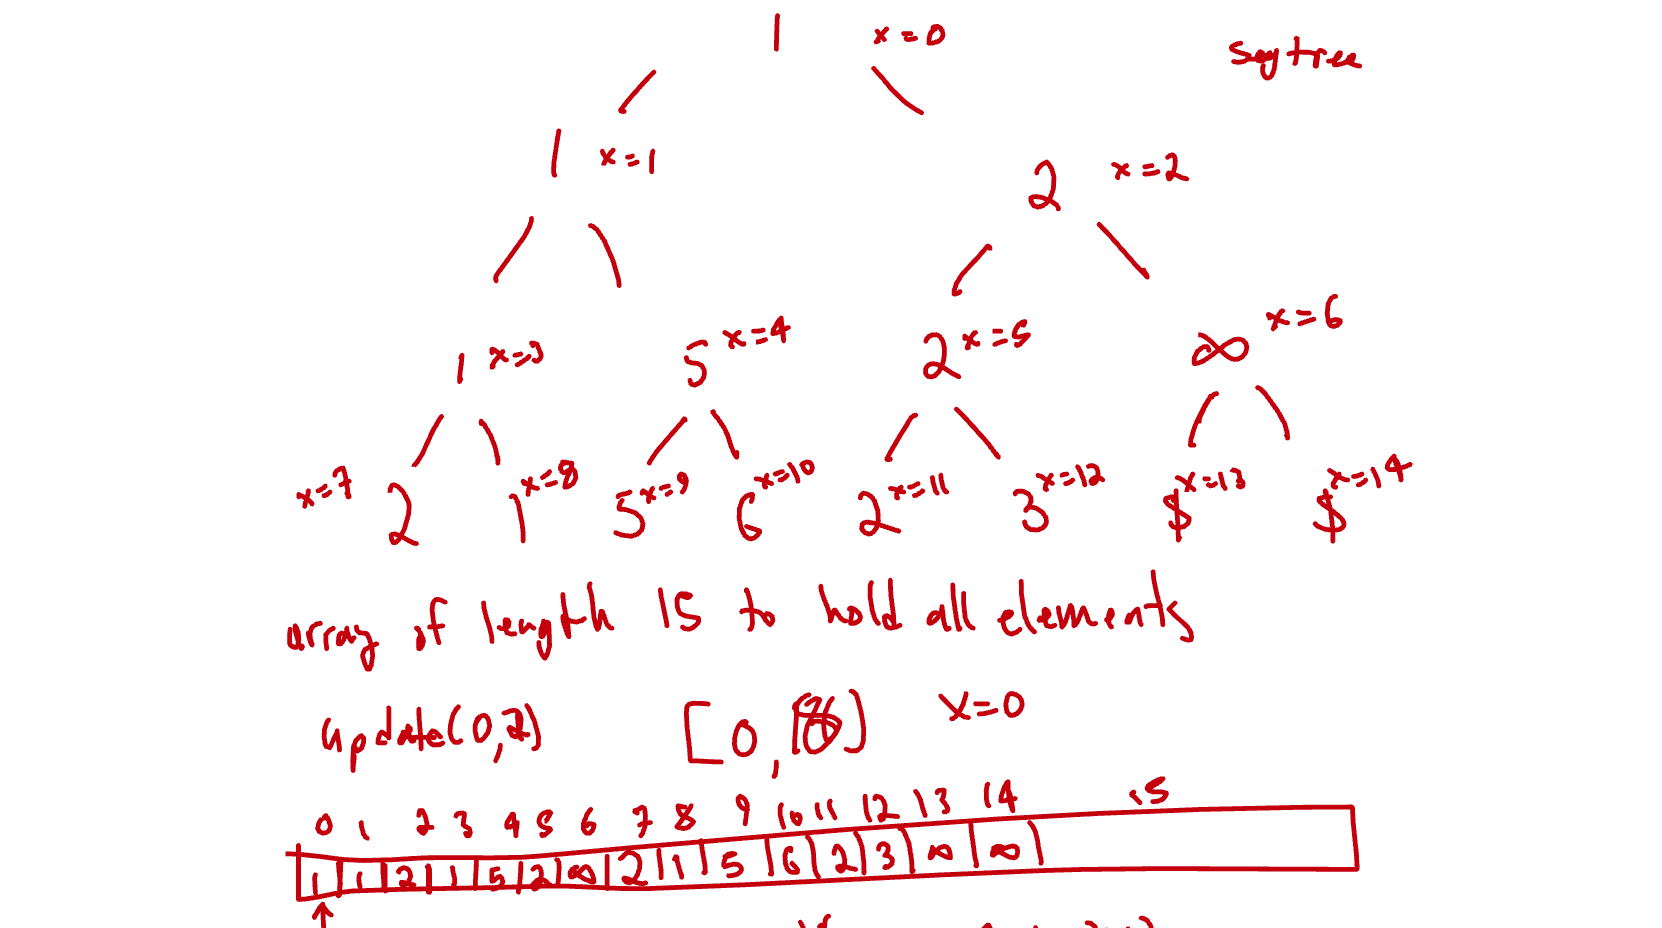 1 x=0 segtree
1 x=1
2 x=2
1 x=3 5 x=4 2 x=5 ∞ x=6
x=7 2 1 x=8 5 x=9 6 x=10 2 x=11 3 x=12 $ x=13 $ x=14
array of length 15 to hold all elements
update(0,2) [0, ) x=0
0 1 2 3 4 5 6 7 8 9 10 11 12 13 14 15
1 1 2 1 5 2 ∞ 2 1 5 6 2 3 ∞ ∞